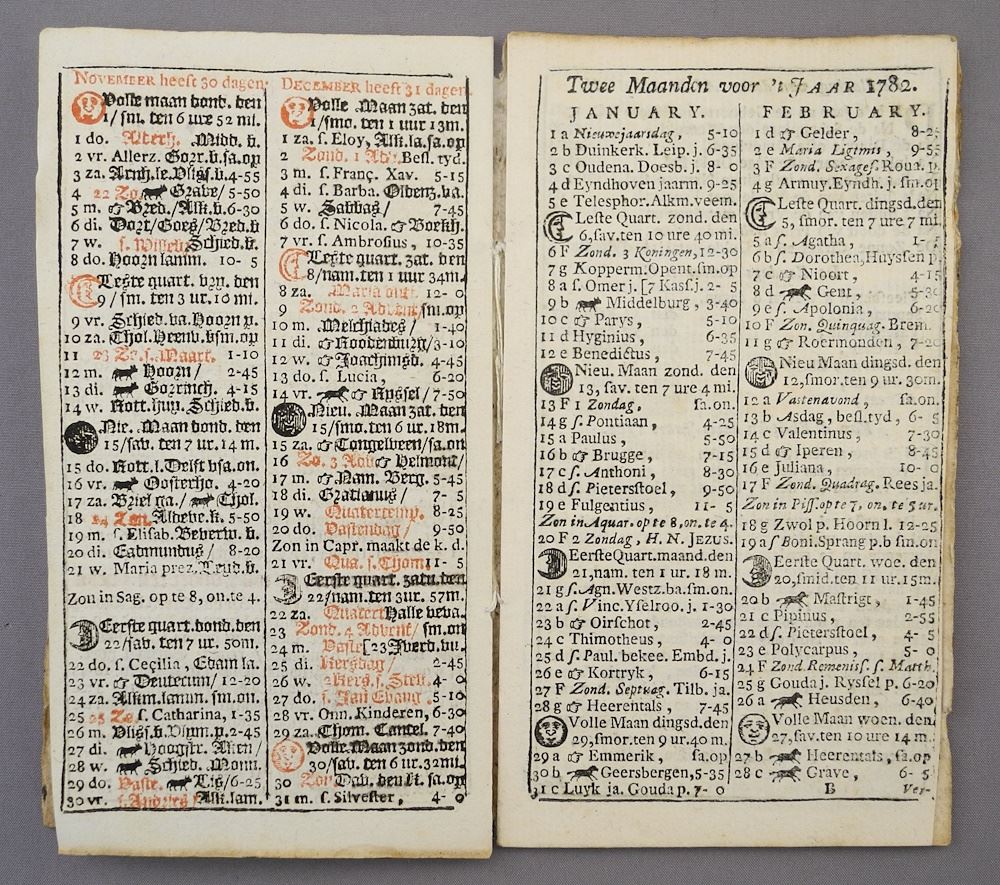 NOVEMBER heeft 30 dagen.
Volle maan dond. den
1/sm. ten 6 ure 52 mil.
1 do. Allerh. Midd. b.
2 vr. Allerz. Gorr.b.sa.op
3 za. Arnh.le.Vliss.b.4-55
4 22 Zo. Grave/ 5-50
5 m. ☞Bred./Alk.b.6-30
6 di. Dort/Goes/Bred.b
7 w. s. Willeb. Schied.b.
8 do. Hoorn lamm. 10- 5
Leste quart. vry. den
9/sm. ten 3 ur. 10 mi.
9 vr. Schied.va.Hoorn p.
10 za. Thol.Veenb.vsm.op
11 23 Zo.s.Maart. 1-10
12 m. Hoorn/ 2-45
13 di. Gorrnich. 4-15
14 w. Rott.huy. Schied.b.
Nie. Maan dond. den
15/sav. ten 7 ur. 14 m.
15 do. Rott.l.Delft vsa.on.
16 vr. Oosterho. 4-20
17 za. Briel ga./ Thol.
18 24 Zon. Aldeve.k. 5-50
19 m. s. Elisab. Beverw. b.
20 di. Eadmundus/ 8-20
21 w. Maria prez. Leyd.b.
Zon in Sag. op te 8, on.te 4.
Eerste quart.dond.den
22/sav. ten 7 ur. 50m.
22 do. s. Cecilia, Edam la.
23 vr. ☞Deutecum/ 12-20
24 za. Alkm.lamm. sm.on.
25 25 Zo. s. Catharina, 1-35
26 m. Vliss.b.Vlym.p.2-45
27 di. Hoogstr. Alken/
28 w. Schied. Monn.
29 do. Vaste. Lis/6-25
30 vr. s.Andries Alk.lam.
DECEMBER heeft 31 dagen.
Volle Maan zat. den
1/smo. ten 1 uur 13m.
1 za. s. Eloy, Alk.la.sa.op
2 Zond. 1 Adv. Besl. tyd.
3 m. s. Franç. Xav. 5-15
4 di. s. Barba. Osbenz.va.
5 w. Sabbas/ 7-45
6 do. s. Nicola. ☞Boekh.
7 vr. s. Ambrosius, 10-35
Leste quart. zat. den
8/nam. ten 1 uur 34m.
8 za. Maria ont. 12- 0
9 Zond. 2 Advent/sm.on
10 m. Melchiades/ 1-40
11 di. ☞Roodenburg/3-10
12 w. ☞Joachimsd. 4-45
13 do. s. Lucia, 6-20
14 vr. ☞Ryssel/ 7-50
Nieu. Maan zat. den
15/smo. ten 6 ur. 18m.
15 za. ☞Tongelveen/sa.on
16 Zo. 3 Adv. ☞Helmont/
17 m. ☞Nam. Berg. 5-45
18 di. Gratianus/ 7- 5
19 w. Quatertemp. 8-25
20 do. Vastendag/ 9-50
Zon in Capr. maakt de k. d.
21 vr. Qua. s.Thom 11- 5
Eerste quart. zatu.den
22/nam.ten 3ur. 57m.
22 za. Quatert Halle beva.
23 Zond. 4 Advent/ sm.on
24 m. Vaste[23Everd.vu.
25 di. Kersdag/ 2-45
26 w. 2Kers.s. Stef. 4- 0
27 do. s. Jan Evang. 5-10
28 vr. Onn. Kinderen, 6-30
29 za. Thom. Cantel. 7-40
Volle Maan zond.den
30/sav. ten 6 ur.32mi.
30 Zon Dav. den Li. sa.op
31 m. s. Silvester, 4- 0
Twee Maanden voor 't JAAR 1782.
JANUARY.
1 a Nieuwejaarsdag, 5-10
2 b Duinkerk. Leip. j. 6-35
3 c Oudena. Doesb.j. 8- 0
4 d Eyndhoven jaarm. 9-25
5 e Telesphor. Alkm.veem.
Leste Quart. zond. den
6, sav.ten 10 ure 40 mi.
6 F Zond. 3 Koningen, 12-30
7 g Kopperm.Opent.sm.op
8 a s. Omer j. [7 Kass.j. 2- 5
9 b Middelburg, 3-40
10 c ☞ Parys, 5-10
11 d Hyginius, 6-35
12 e Benedictus, 7-45
Nieu. Maan zond. den
13, sav. ten 7 ure 4 mi.
13 F 1 Zondag, sa.on.
14 g s. Pontiaan, 4-25
15 a Paulus, 5-50
16 b ☞ Brugge, 7-15
17 c s. Anthoni, 8-30
18 d s. Pieterstoel, 9-50
19 e Fulgentius, 11- 5
Zon in Aquar. op te 8, on.te 4.
20 F 2 Zondag, H. N. JEZUS.
Eerste Quart.maand.den
21, nam. ten 1 ur. 18 m.
21 g s. Agn. Westz.ba.sm.on.
22 a s. Vinc. Yselroo. j. 1-30
23 b ☞ Oirschot, 2-45
24 c Timotheus, 4- 0
25 d s. Paul. bekee. Embd. j.
26 e ☞ Kortryk, 6-15
27 F Zond. Septuag. Tilb. ja.
28 g ☞ Heerentals, 7-45
Volle Maan dingsd.den
29, smor.ten 9 ur. 40 m.
29 a ☞ Emmerik, sa.op
30 b Geersbergen, 5-35
31 c Luyk ja. Gouda p. 7- 0
FEBRUARY.
1 d ☞ Gelder, 8-25
2 e Maria Ligtmis, 9-55
3 F Zond. Sexages. Roua. p.
4 g Armuy. Eyndh. j. sm.op
Leste Quart. dingsd.den
5, smor. ten 7 ure 7 mi.
5 a s. Agatha,
6 b s. Dorothea, Huyssen p.
7 c ☞ Nioort, 4-15
8 d Gent, 5-30
9 e s. Apolonia, 6-20
10 F Zon. Quinquag. Brem.
11 g ☞ Roermonden, 7-20
Nieu Maan dingsd. den
12, smor.ten 9 ur. 30m.
12 a Vastenavond, sa.on.
13 b Asdag, besl.tyd, 6- 5
14 c Valentinus, 7-30
15 d ☞ Iperen, 8-45
16 e Juliana, 10- 0
17 F Zond. Quadrag. Rees ja.
Zon in Piss.op te 7, on, te 5 ur.
18 g Zwol p. Hoorn l. 12-25
19 a s Boni.Sprang p.b sm.on
Eerste Quart. woe. den
20, smid.ten 11 ur. 15m.
20 b Mastrigt, 1-45
21 c Pipinus, 2-55
22 d s. Pieterstoel, 4- 5
23 e Polycarpus, 5- 0
24 F Zond. Reminis. s. Matth.
25 g Gouda j. Ryssel p. 6-20
26 a Heusden, 6-40
Volle Maan woen. den
27, sav.ten 10 ure 14 m.
27 b Heerentals, sa.op
28 c Grave, 6- 5
B Ver-